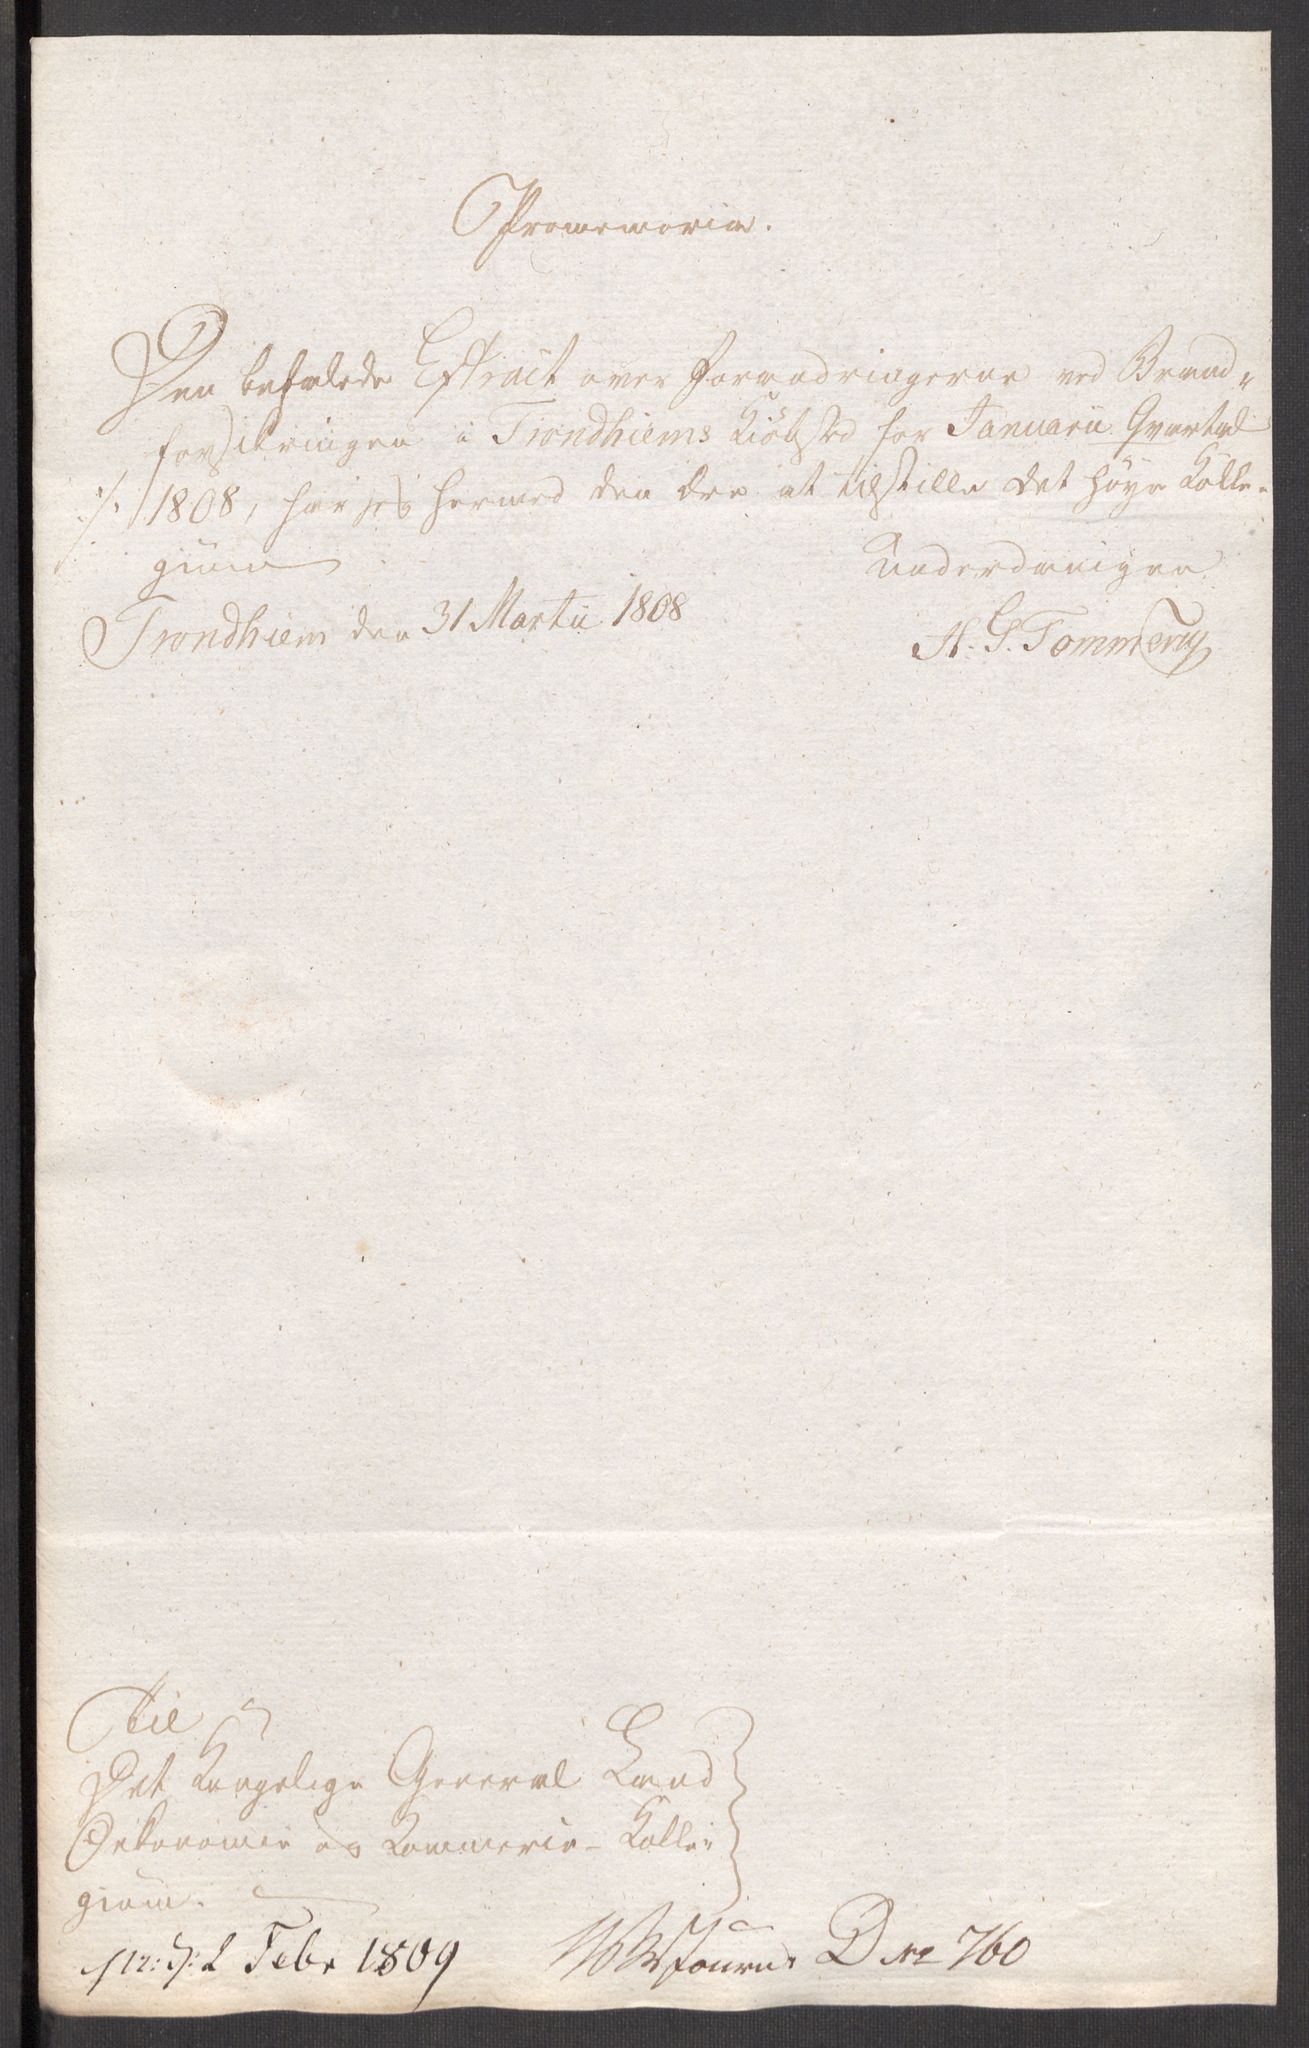 Promemoria.
Den befalede Extract over Forandringerne ved Brand-
forsikringen i Trondhiems Kiøbsted for Januarii Qvartal
·/· 1808, har jeg hermed den Ære at tilstille det høye Colle-
gium
Underdanigen
Trondhiem den 31 Martii 1808
H. S. Tommerup
Til
Det Kongelige General Land
Oekonomie og Kommerce-Kolle-
gium.
pr: d: 2 Febr 1809
Journ: D No 760